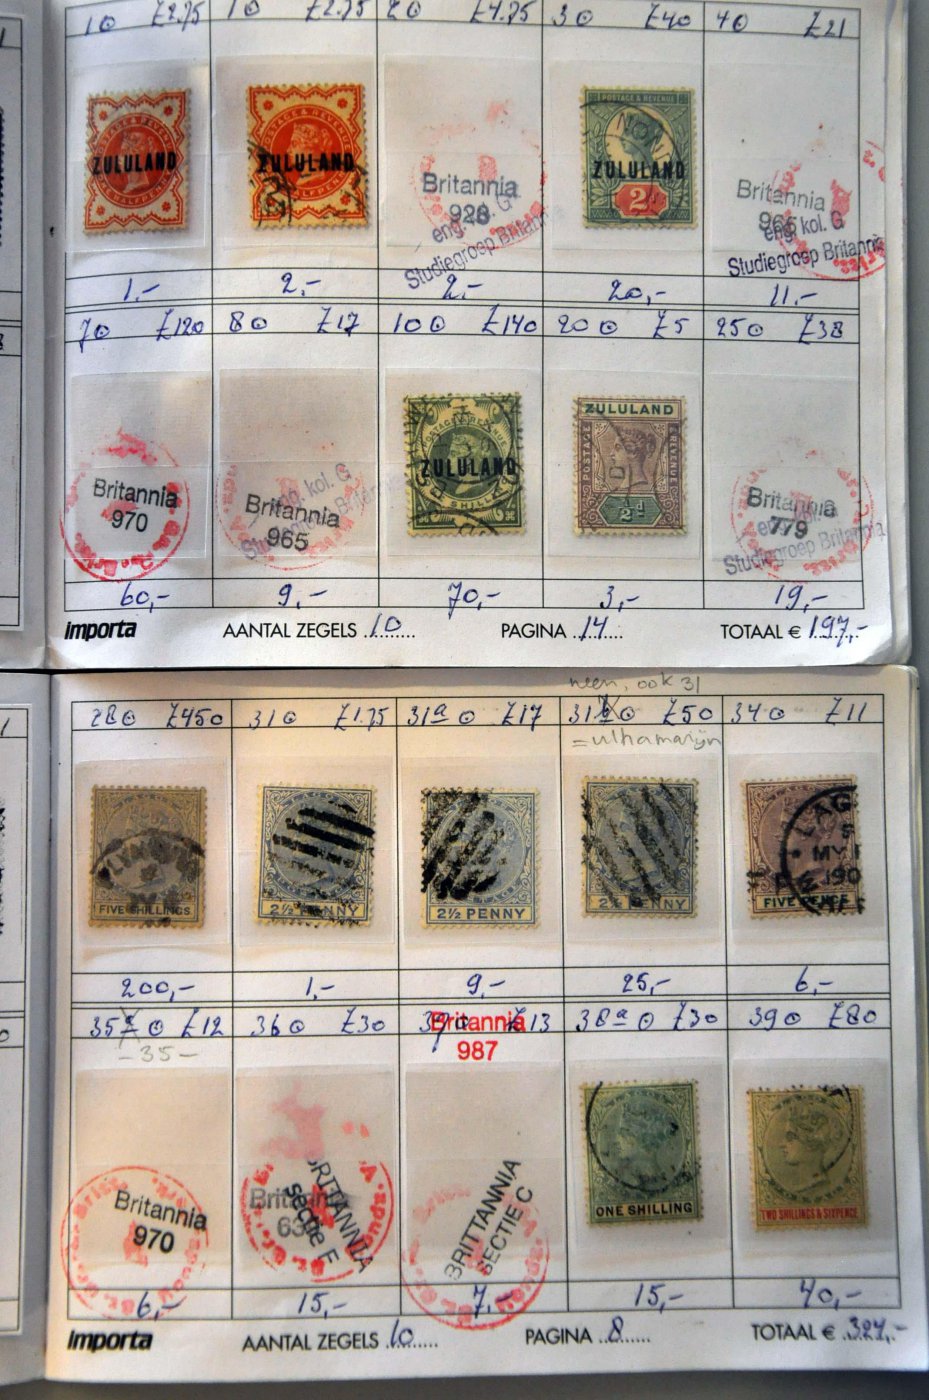 10 £2.75 10 £2.75 20 £4.75 30 £40 40 £21
ZULULAND ZULULAND ZULULAND
POSTAGE & REVENUE
2d
Britannia
928
eng. kol. G
Studiegroep Britannia
Britannia
966
eng kol. G
Studiegroep Britannia
1,- 2,- 2,- 20,- 11,-
70 £120 80 £17 100 £140 200 £5 250 £38
Britannia
970
eng. kol. G
Britannia
965
ZULULAND
SHILLING
ZULULAND
POSTAGE & REVENUE
½d
Britannia
779
Studiegroep Britannia
60,- 9,- 70,- 3,- 19,-
importa AANTAL ZEGELS 10 PAGINA 14 TOTAAL € 197,-
neen, ook 31
280 £450 310 £1.75 31a £17 31 £50 340 £11
= ultramarijn
FIVE SHILLINGS
2½ PENNY
2½ PENNY
2½ PENNY
FIVE PENCE
LAG
MY 1
190
200,- 1,- 9,- 25,- 6,-
35 £12 360 £30 £13 38a £30 390 £80
- 35 -
Britannia
987
Britannia
970
BRITANNIA
sectie E
Britannia
BRITTANNIA
SECTIE C
ONE SHILLING
TWO SHILLINGS & SIXPENCE
6,- 15,- 7,- 15,- 40,-
importa AANTAL ZEGELS 10 PAGINA 8 TOTAAL € 324,-